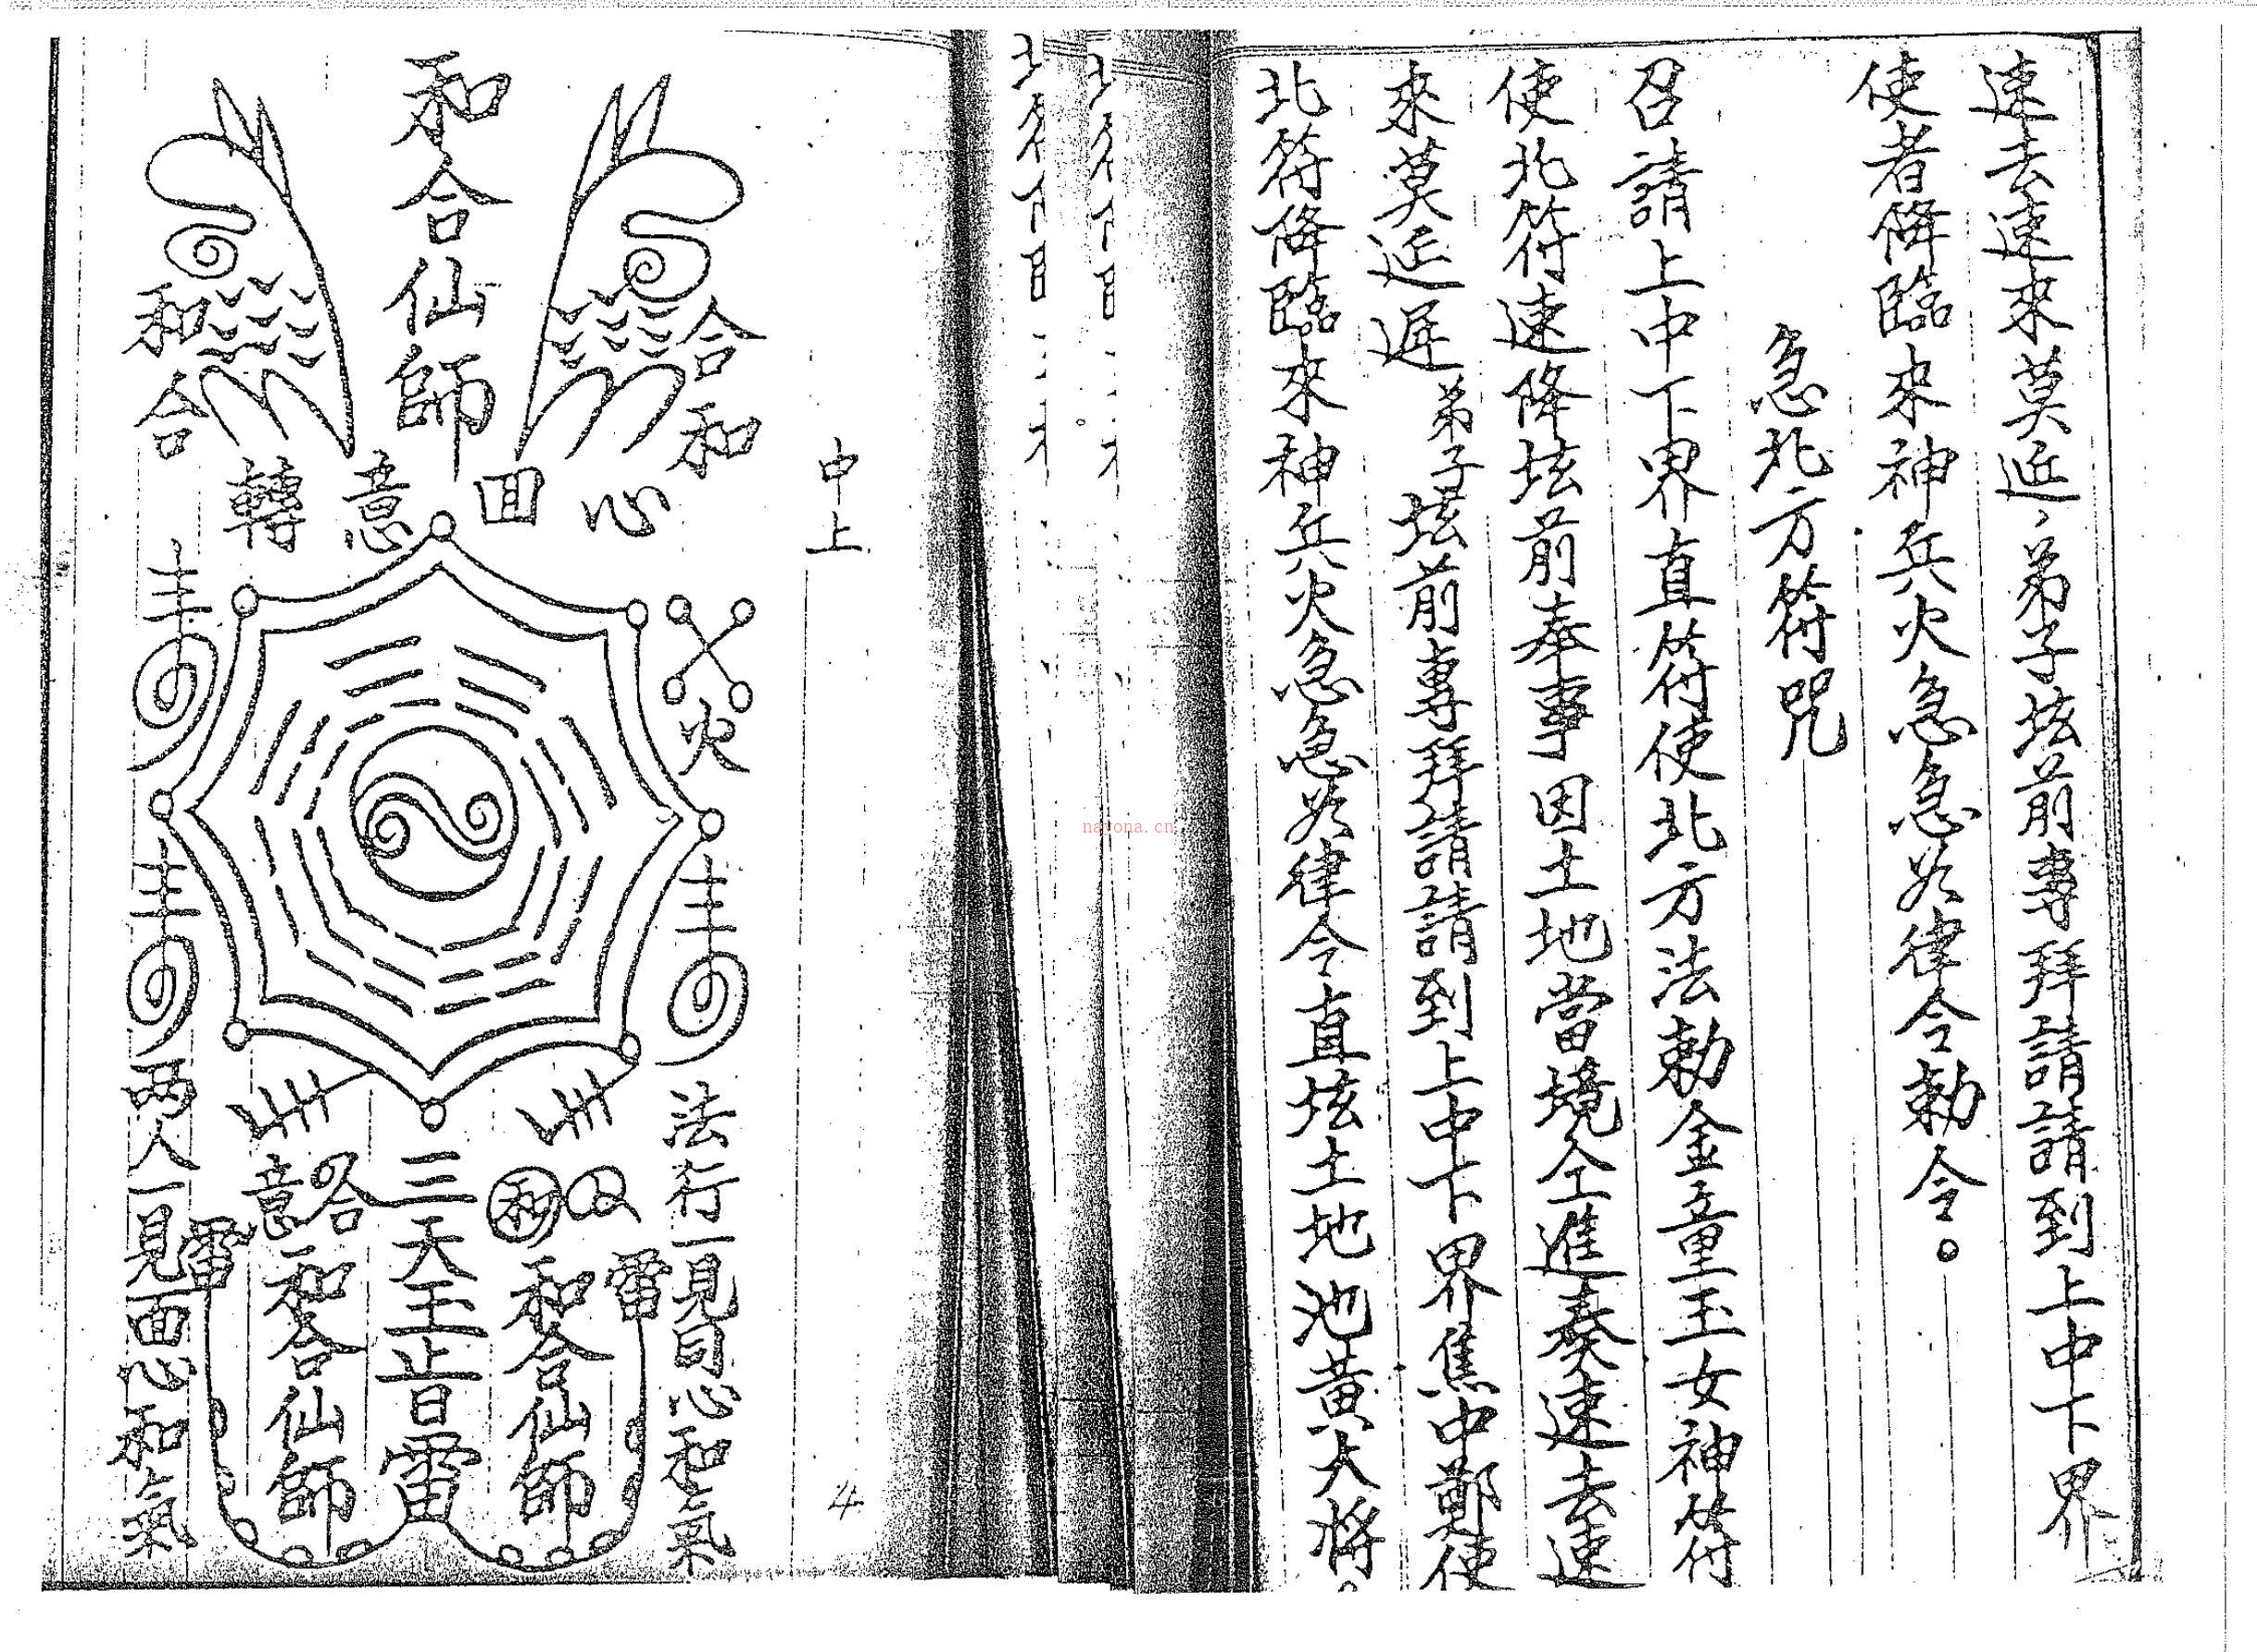 速去速來莫延、弟子坛前專拜請請到上中下界
使者降臨來神兵火急急如律令勅令。
急北方符咒
召請上中下界直符使北方法勅金童玉女神符
使北符速降坛前奉事因土地當境仝進奏速去速
來莫延遲弟子坛前專拜請請到上中下界焦中鄭使
北符降臨來神兵火急急如律令直坛土地池黄大将。
中上
4
和合仙師
合和
和合
心回意轉
火
法行一見同心和氣
两人一見面心和氣
三天王旨日雷
和
合意
和合仙師
和合仙師
雷
雷
natona.cn